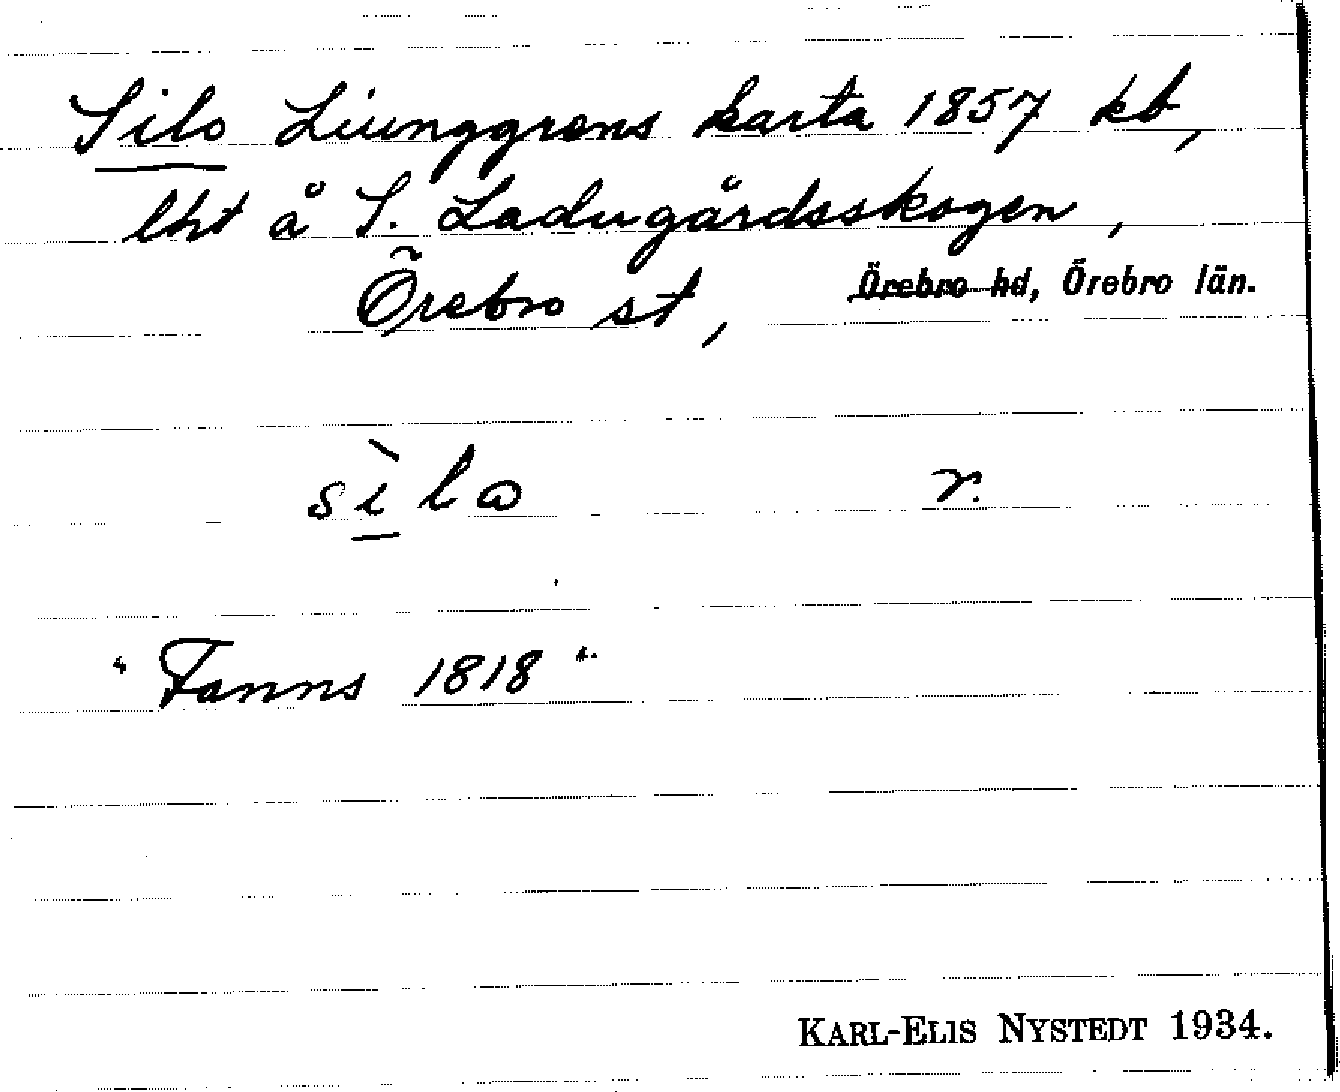 Silo Liunggrens karta 1857 kb,
lht å S. Ladugårdsskogen,
Örebro st, Örebro hd, Örebro län.
sìlo r.
"Fanns 1818"
KARL-ELIS NYSTEDT 1934.